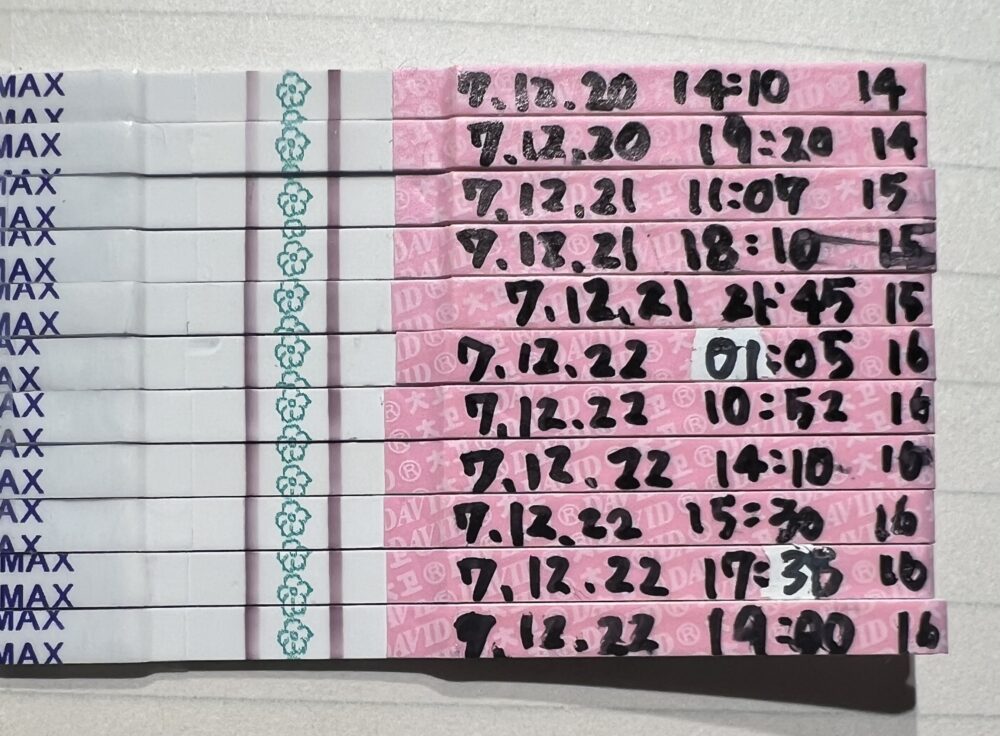 MAX 7.12.20 14:10 14
MAX 7.12.20 19:20 14
MAX 7.12.21 11:07 15
MAX 7.12.21 18:10 15
MAX 7.12.21 21:45 15
MAX 7.12.22 01:05 16
MAX 7.12.22 10:52 16
MAX 7.12.22 14:10 16
MAX 7.12.22 15:30 16
MAX 7.12.22 17:35 16
MAX 7.12.22 19:00 16